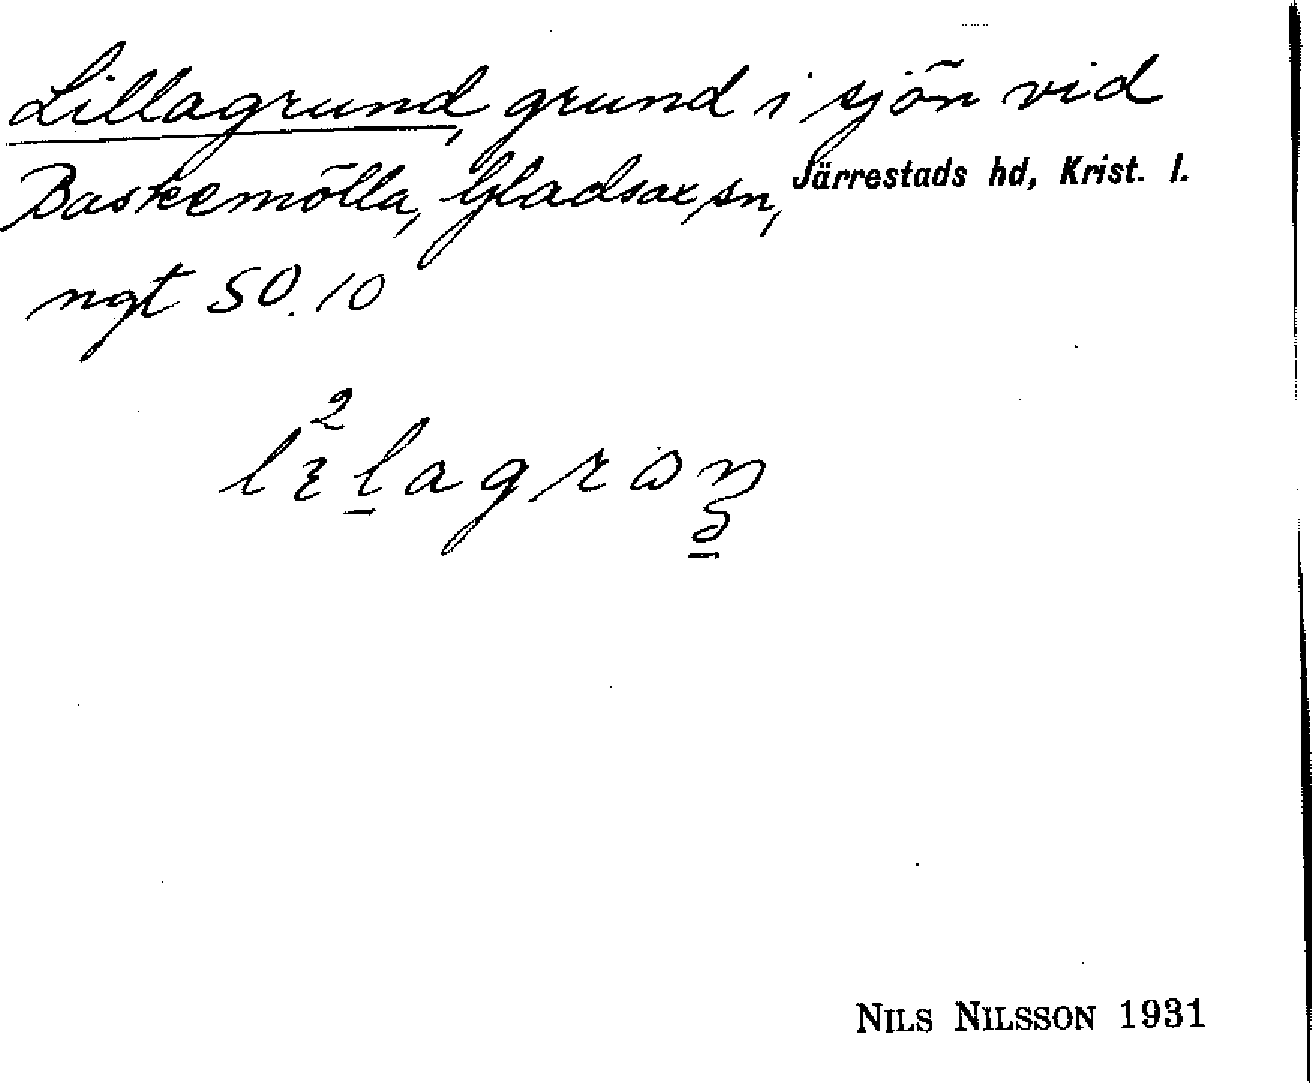 Lillagrund, grund i sjön vid
Baskemölla, Gladsax sn, Järrestads hd, Krist. l.
ngt SO. 10
NILS NILSSON 1931